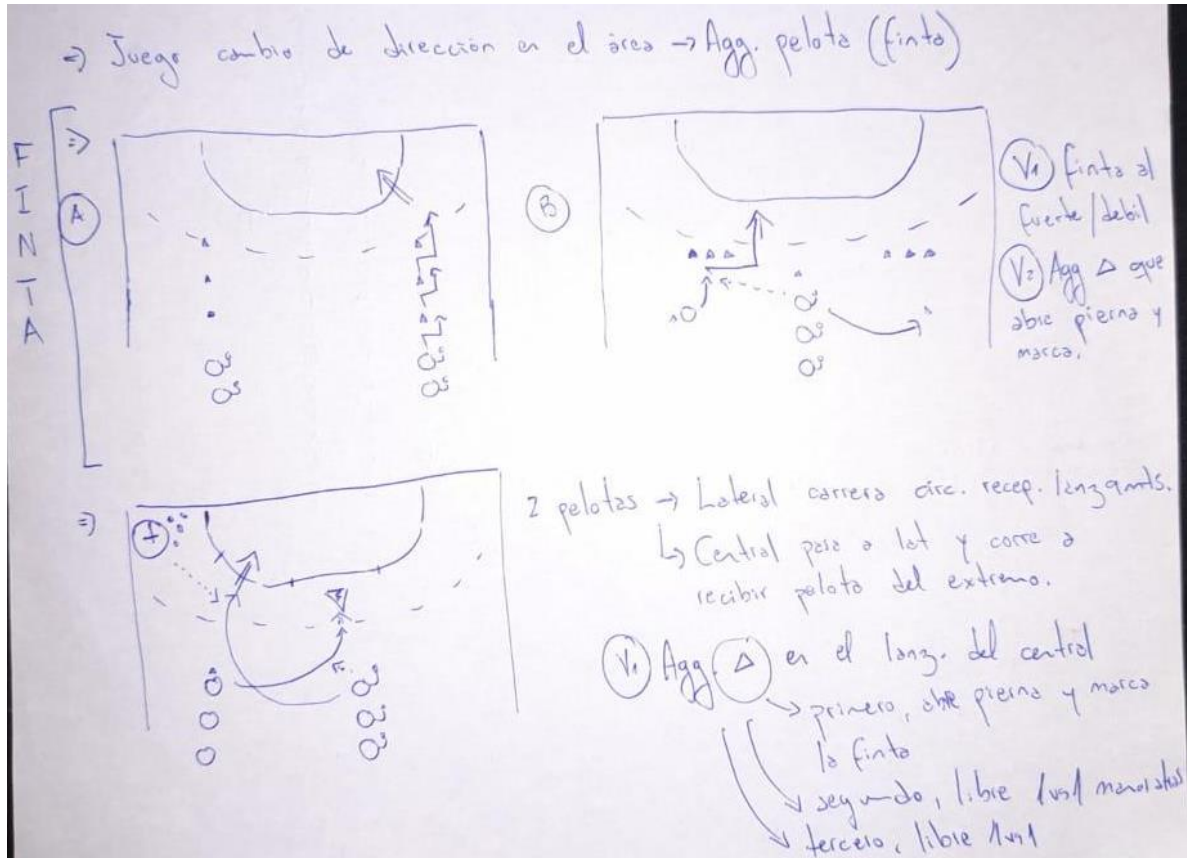 => Juego cambio de dirección en el área → Agg. pelota (finta)
FINTA
=>
A
B
V1 finta al
fuerte/debil
V2 Agg △ que
abre pierna y
marca.
=>
2 pelotas → Lateral carrera circ. recep. lanzamts.
↳ Central pasa a lat y corre a
recibir pelota del extremo.
V1 Agg. △ en el lanz. del central
→ primero, abre pierna y marca
la finta
segundo, libre 1vs1
tercero, libre 1vs1